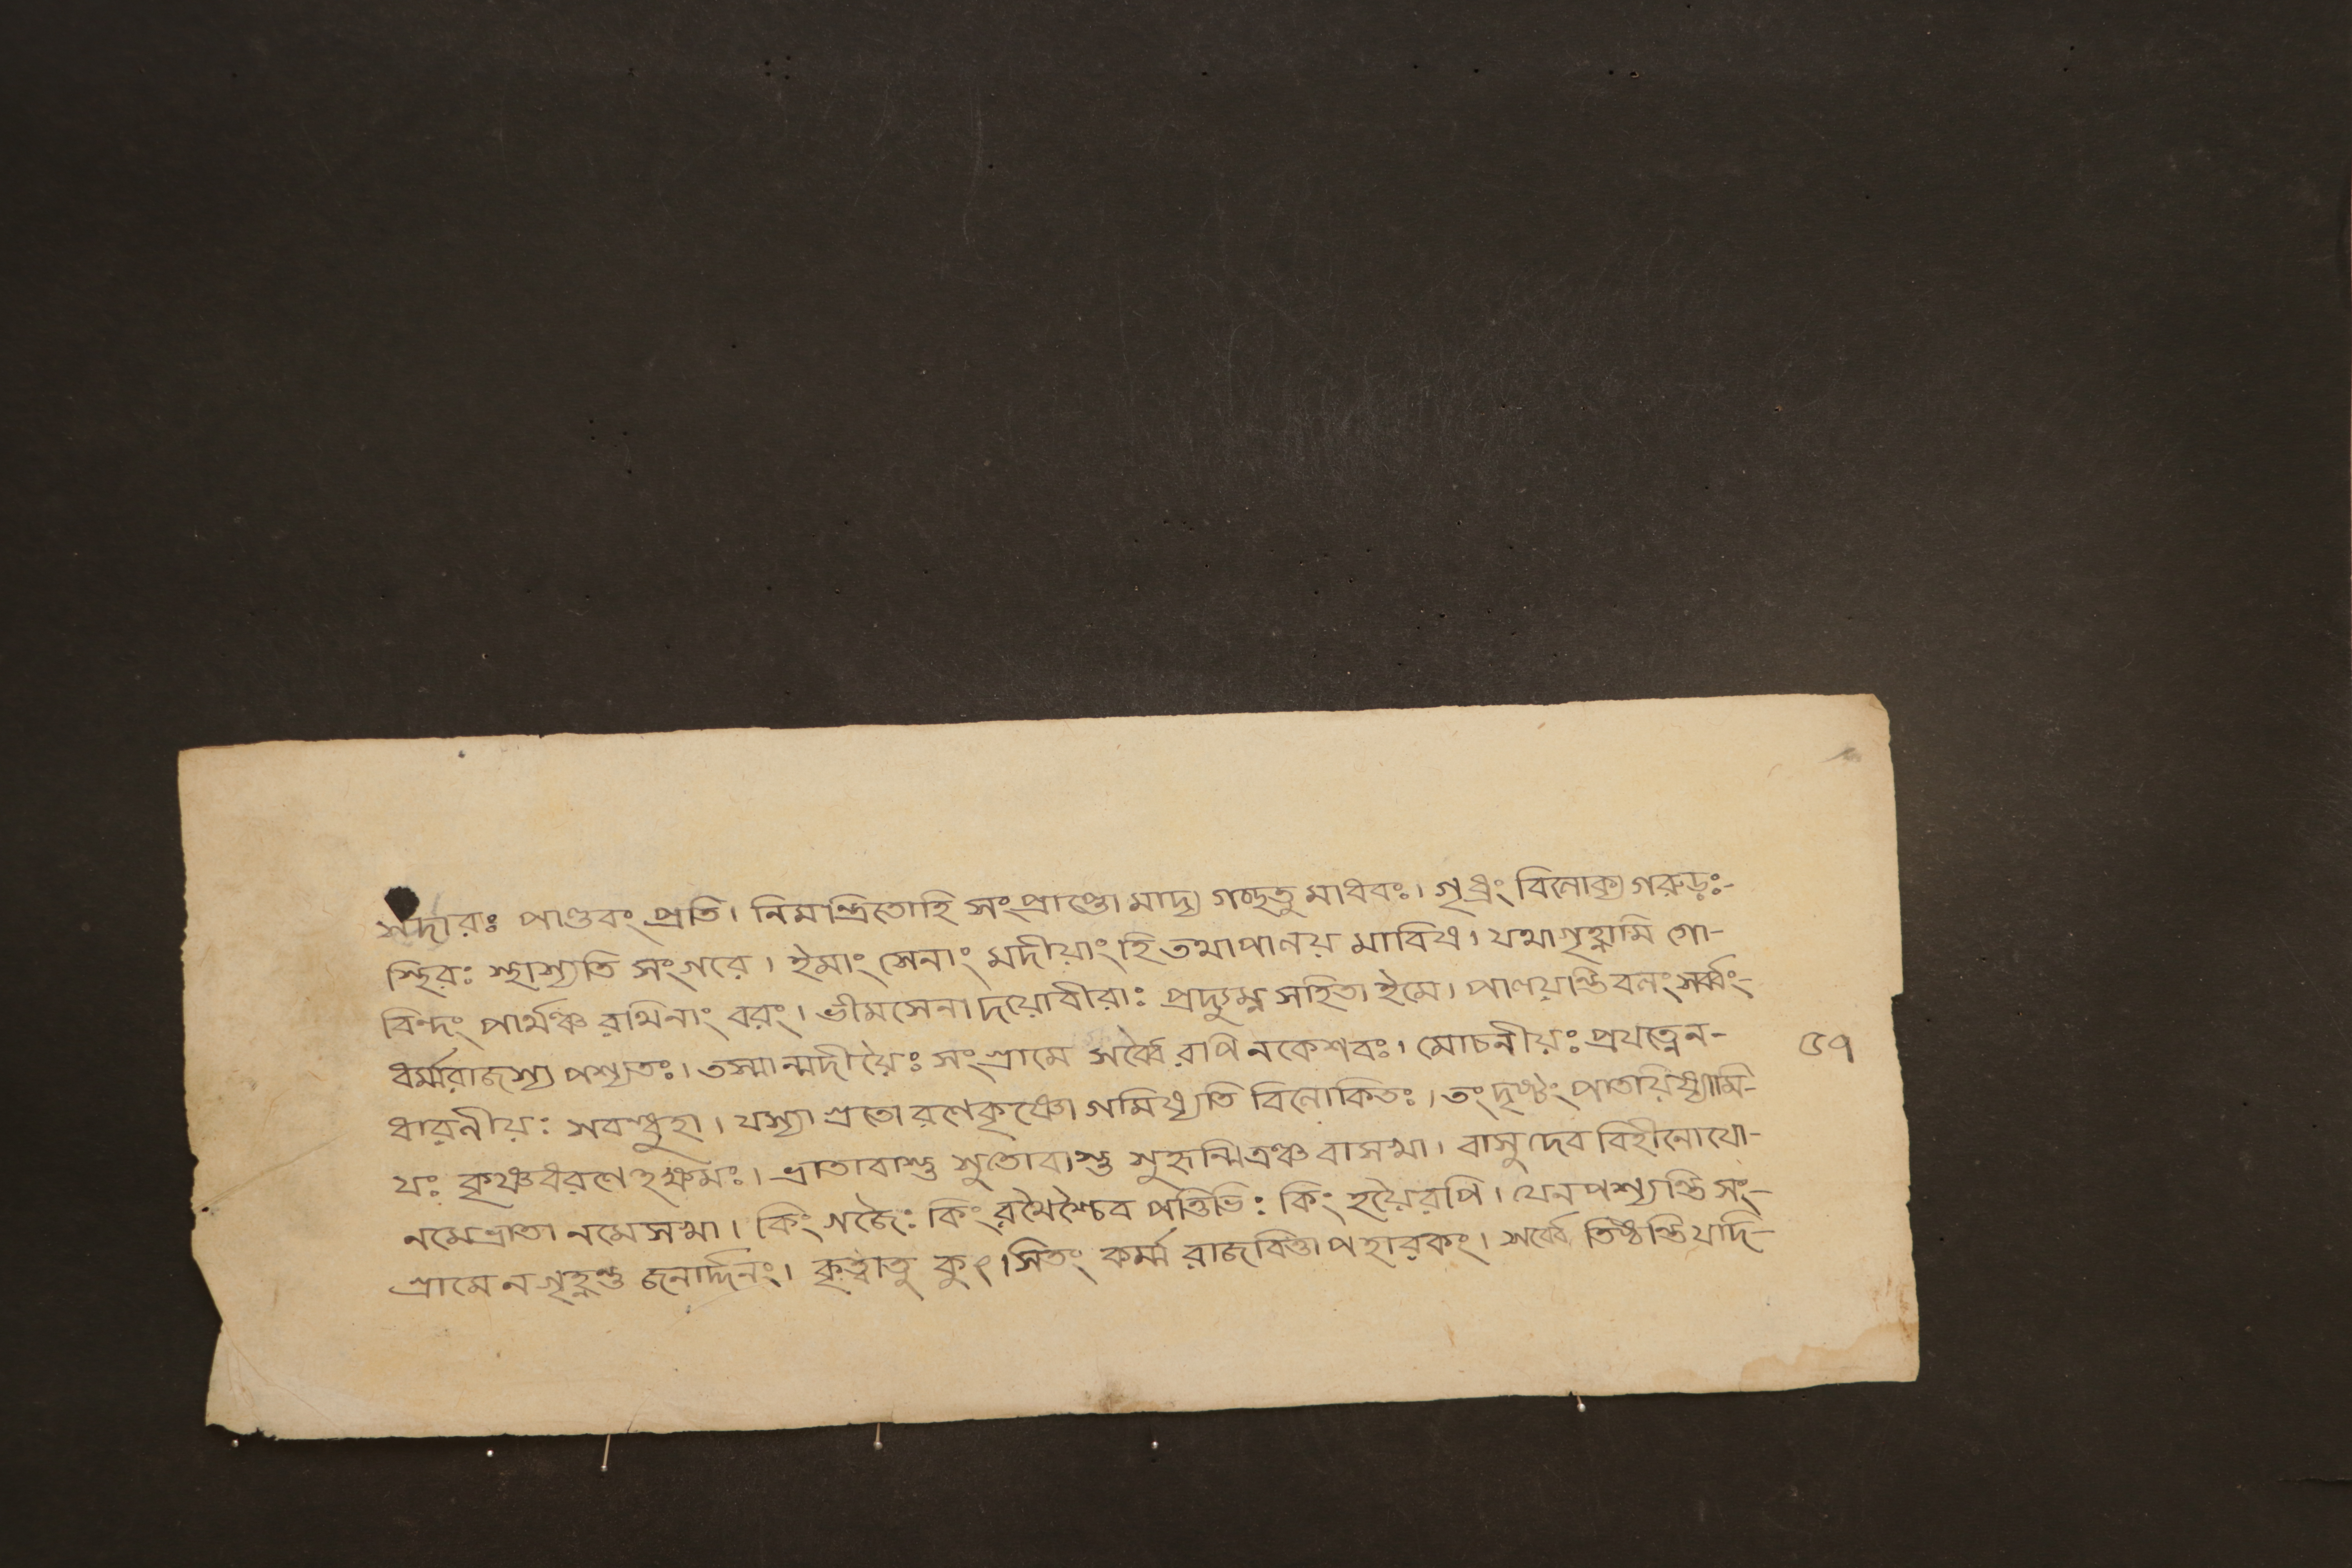 সদারঃ পাণ্ডবং প্রতি। নিমন্ত্রিতোহি সংপ্রাপ্তো মাদ্য গচ্ছতু মাধবঃ। গৃধ্রং বিলোক্য গরুড়ঃ-
স্থিরঃ স্থাস্যতি সংগরে। ইমাং সেনাং মদীয়াং হি তথাপালয় মাবিষ। যথাগৃহ্নামি গো-
বিন্দং পার্থঞ্চ রথিনাং বরং। ভীমসেনাদয়োবীরাঃ প্রদ্যুম্ন সহিতা ইমে। পালয়ন্তি বলং সর্ব্বং-
ধর্ম্মরাজস্য পশ্যতঃ। তস্মান্মদীয়ৈঃ সংগ্রামে সর্ব্বৈ রপি নকেশবঃ। মোচনীয়ঃ প্রযত্নেন- ৫৭
ধারনীয়ঃ সবন্ধুহা। যস্যা গ্রতো রণেকৃষ্ণো গমিষ্যতি বিলোকিতঃ। তং দৃষ্টং পাতয়িষ্যামি-
যঃ কৃষ্ণধরণে হক্ষমঃ। ভ্রাতাবাস্তু সুতোবাস্তু সুহৃন্মিত্রঞ্চ বাসখা। বাসুদেব বিহীনোযো-
নমেভ্রাতা নমে সখা। কিং গজৈঃ কিং রথৈশ্চৈব পত্তিভিঃ কিং হয়ৈরপি। যেনপশ্যন্তি সং-
গ্রামে নগৃহ্নন্তু জনার্দ্দনং। কৃত্বাতু কুৎসিতং কর্ম্ম রাজবিত্তাপহারকং। সর্ব্বে তিষ্ঠন্তিযদি-